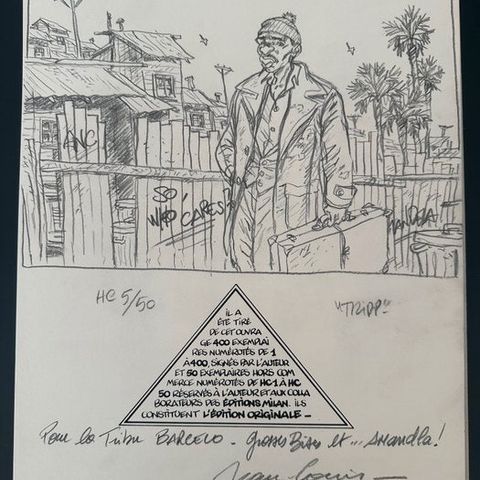 ANC
SO, WHO CARES?
MANDELA
HC 5/50
"TRIPP"
IL A
ÉTÉ TIRÉ
DE CET OUVRA
GE 400 EXEMPLAI
RES NUMÉROTÉS DE 1
À 400, SIGNÉS PAR L'AUTEUR
ET 50 EXEMPLAIRES HORS COM
MERCE NUMÉROTÉS DE HC 1 À HC
50 RÉSERVÉS À L'AUTEUR ET AUX COLLA
BORATEURS DES ÉDITIONS MILAN. ILS
CONSTITUENT L'ÉDITION ORIGINALE –
Pour la Tribu BARCELO - Grosses Bises et... Amandla!
Jean-Louis